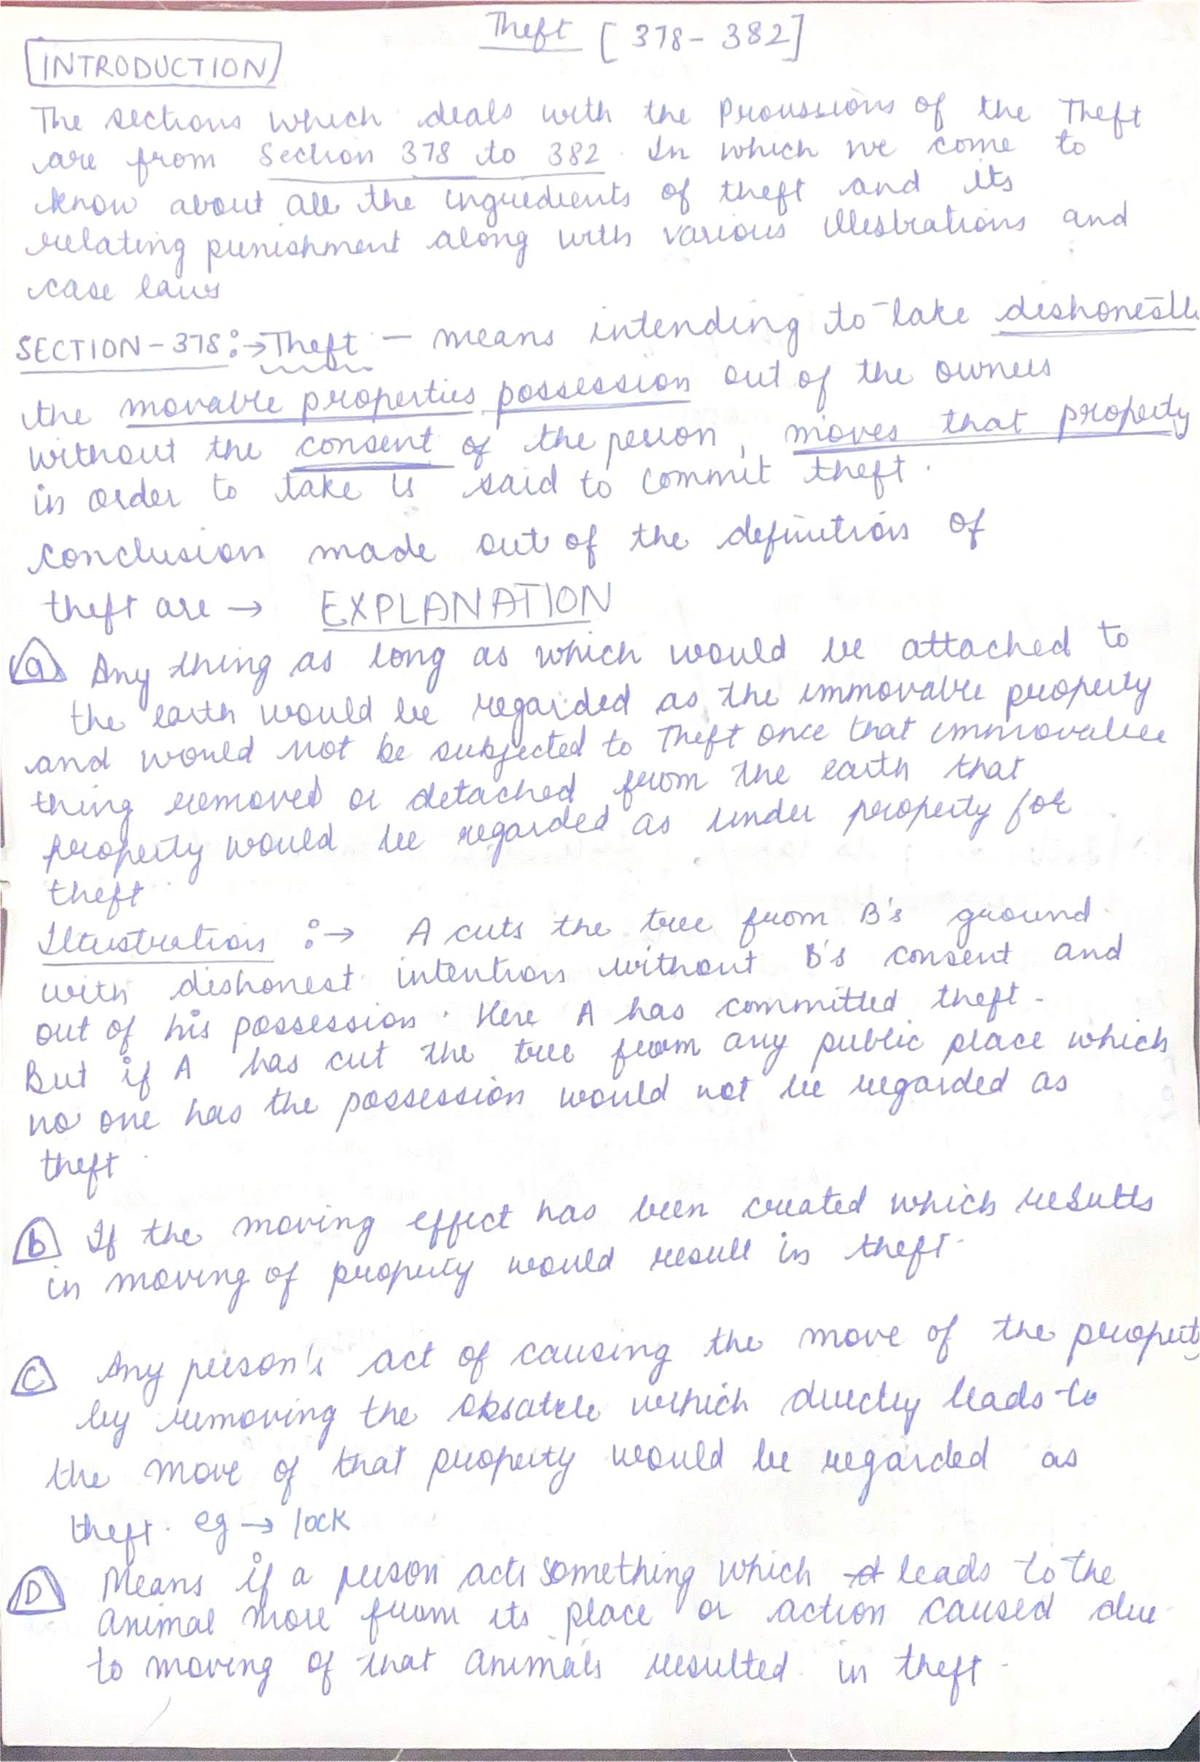 Theft [ 378 - 382 ]
INTRODUCTION
The sections which deals with the Proussions of the Theft
are from Section 378 to 382. In which we come to
know about all the ingredients of theft and its
relating punishment along with various illustrations and
case laws
SECTION - 378 :→ Theft — means intending to take dishonestl
the movable properties possession out of the owners
without the consent of the person, moves that property
in order to take is said to commit theft.
conclusion made out of the definition of
theft are → EXPLANATION
(a) Any thing as long as which would be attached to
the earth would be regarded as the immovable property
and would not be subjected to Theft once that immovable
thing removed or detached from the earth that
property would be regarded as under property for
theft.
Illustration :→ A cuts the tree from B's ground
with dishonest intention without B's consent and
out of his possession. Here A has committed theft.
But if A has cut the tree from any public place which
no one has the possession would not be regarded as
theft.
(b) If the moving effect has been created which results
in moving of property would result in theft.
(c) Any person's act of causing the move of the property
by removing the obsatcle which directly leads to
the move of that property would be regarded as
theft. eg → lock
(D) Means if a person acts something which leads to the
animal move from its place or action caused due
to moving of that animals resulted in theft.